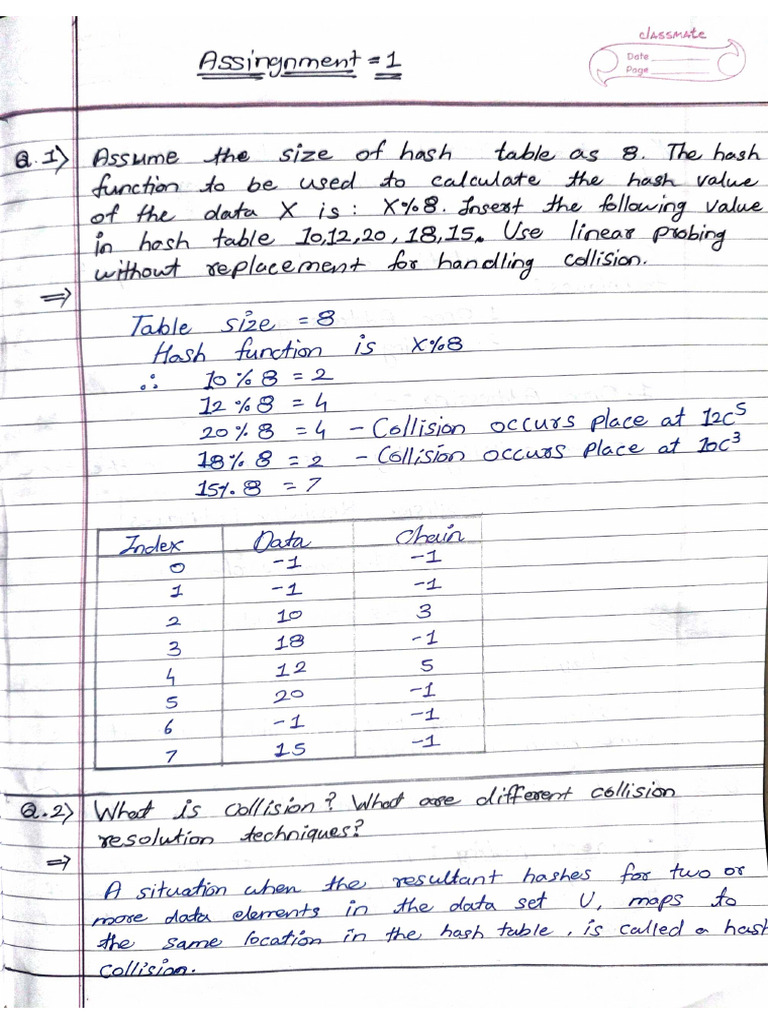 classmate
Date
Page
Assingnment = 1
Q.1) Assume the size of hash table as 8. The hash
function to be used to calculate the hash value
of the data X is: X%8. Insert the following value
in hash table 10,12,20,18,15. Use linear probing
without replacement for handling collision.
⇒
Table size = 8
Hash function is X%8
∴ 10 % 8 = 2
12 % 8 = 4
20 % 8 = 4 - Collision occurs place at 12C⁵
18 % 8 = 2 - Collision occurs place at 10C³
15 % 8 = 7
Index Data Chain
0 -1 -1
1 -1 -1
2 10 3
3 18 -1
4 12 5
5 20 -1
6 -1 -1
7 15 -1
Q.2) What is collision? What are different collision
resolution techniques?
⇒
A situation when the resultant hashes for two or
more data elements in the data set U, maps to
the same location in the hash table, is called a hash
collision.